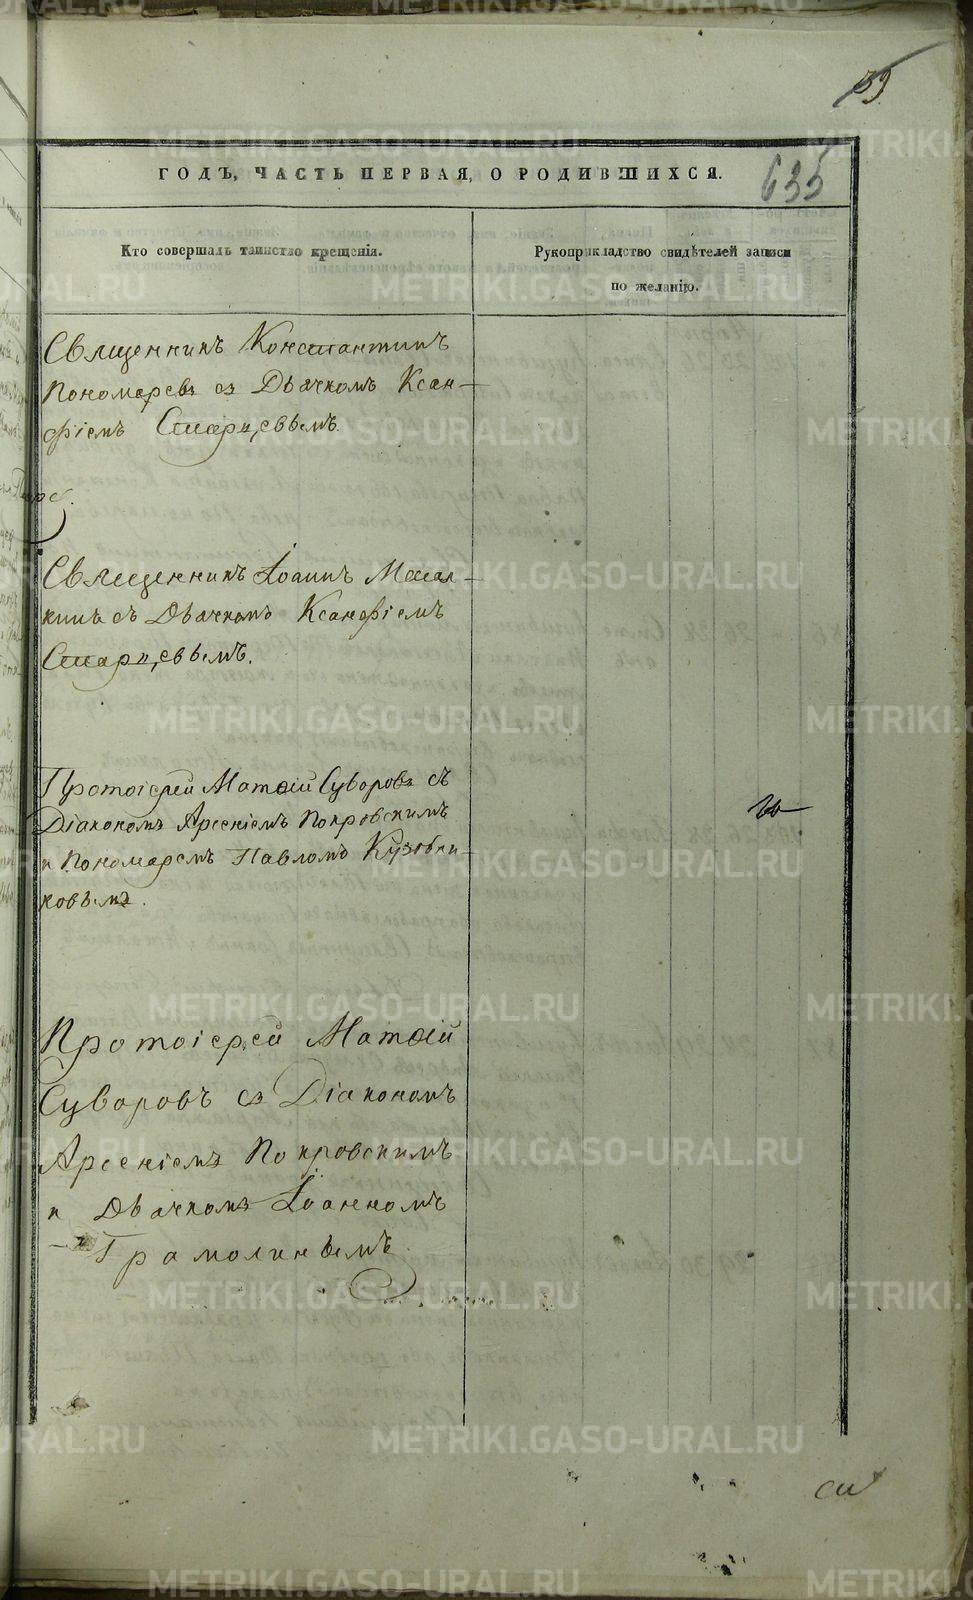 METRIKI.GASO-URAL.RU
39
ГОДЪ, ЧАСТЬ ПЕРВАЯ, О РОДИВШИХСЯ.
635
Кто совершалъ таинство крещенія.
Рукоприкладство свидѣтелей записи
по желанію.
Священникъ Константинъ
Пономаревъ съ Дьячкомъ Ксан-
фіемъ Старцевымъ.
Священникъ Іоаннъ
съ Дьячкомъ Ксанфіемъ
Старцевымъ.
Протоіерей Матѳій Суворовъ съ
Діакономъ Арсеніемъ Покровскимъ
и Пономаремъ Павломъ
ковымъ.
Протоіерей Матѳій
Суворовъ съ Діакономъ
Арсеніемъ Покровскимъ
и Дьячкомъ Іоанномъ
Грамолинымъ.